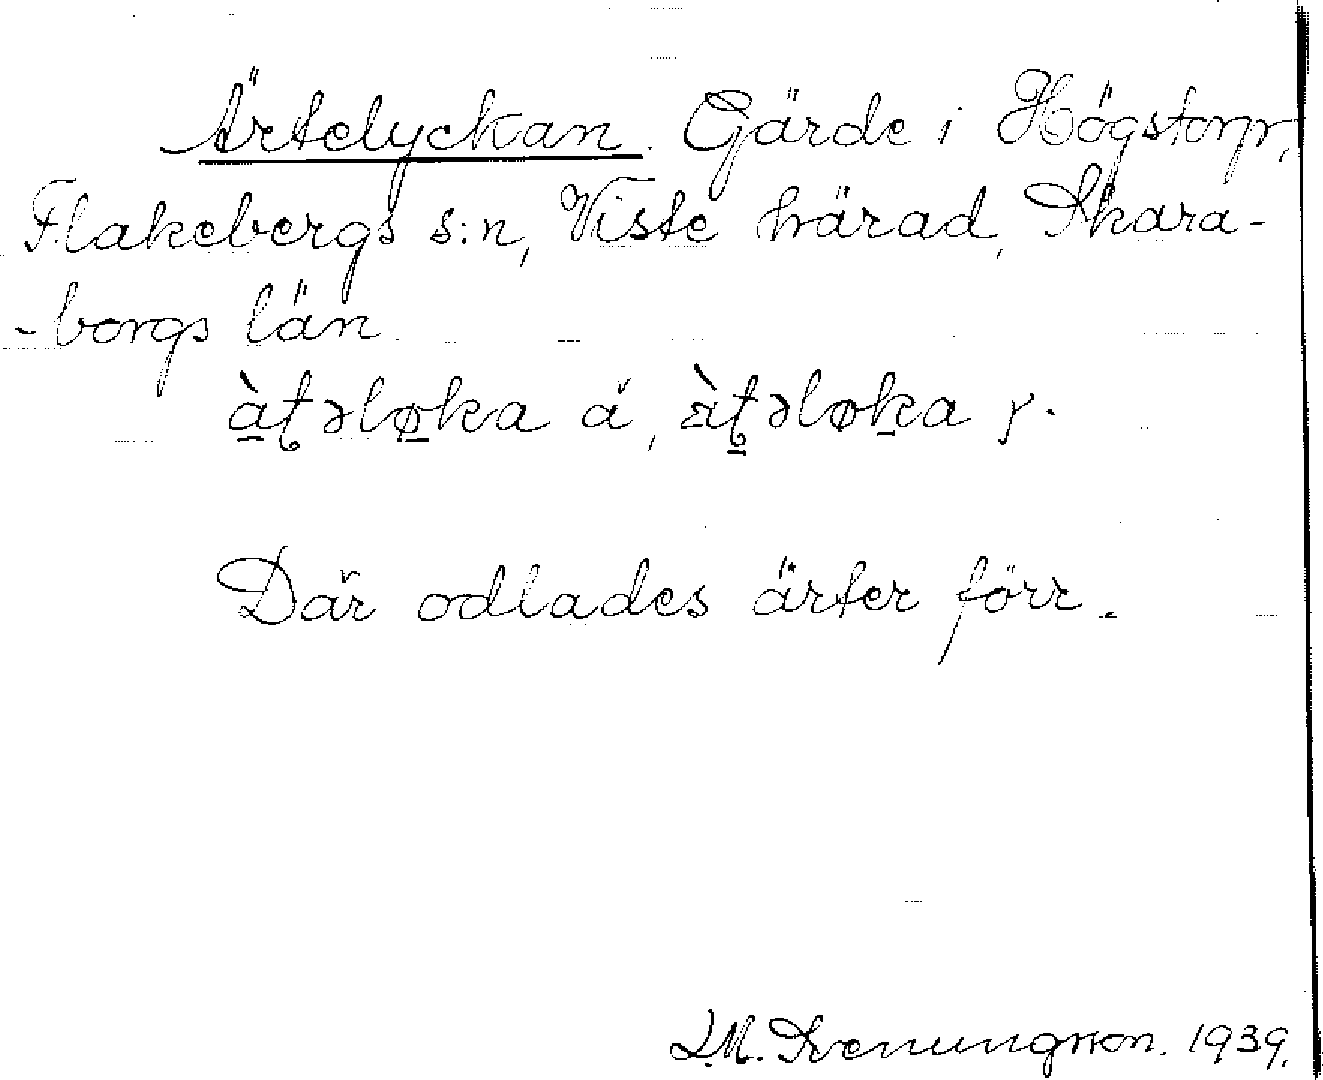 Ärtelyckan. Gärde i Högstorp,
Flakebergs s:n, Viste härad, Skara-
-borgs län.
à̠ʈəlø̠ka ǎ, æ̀ʈəløka y.
Där odlades ärter förr.
J.M. Svenungsson. 1939.